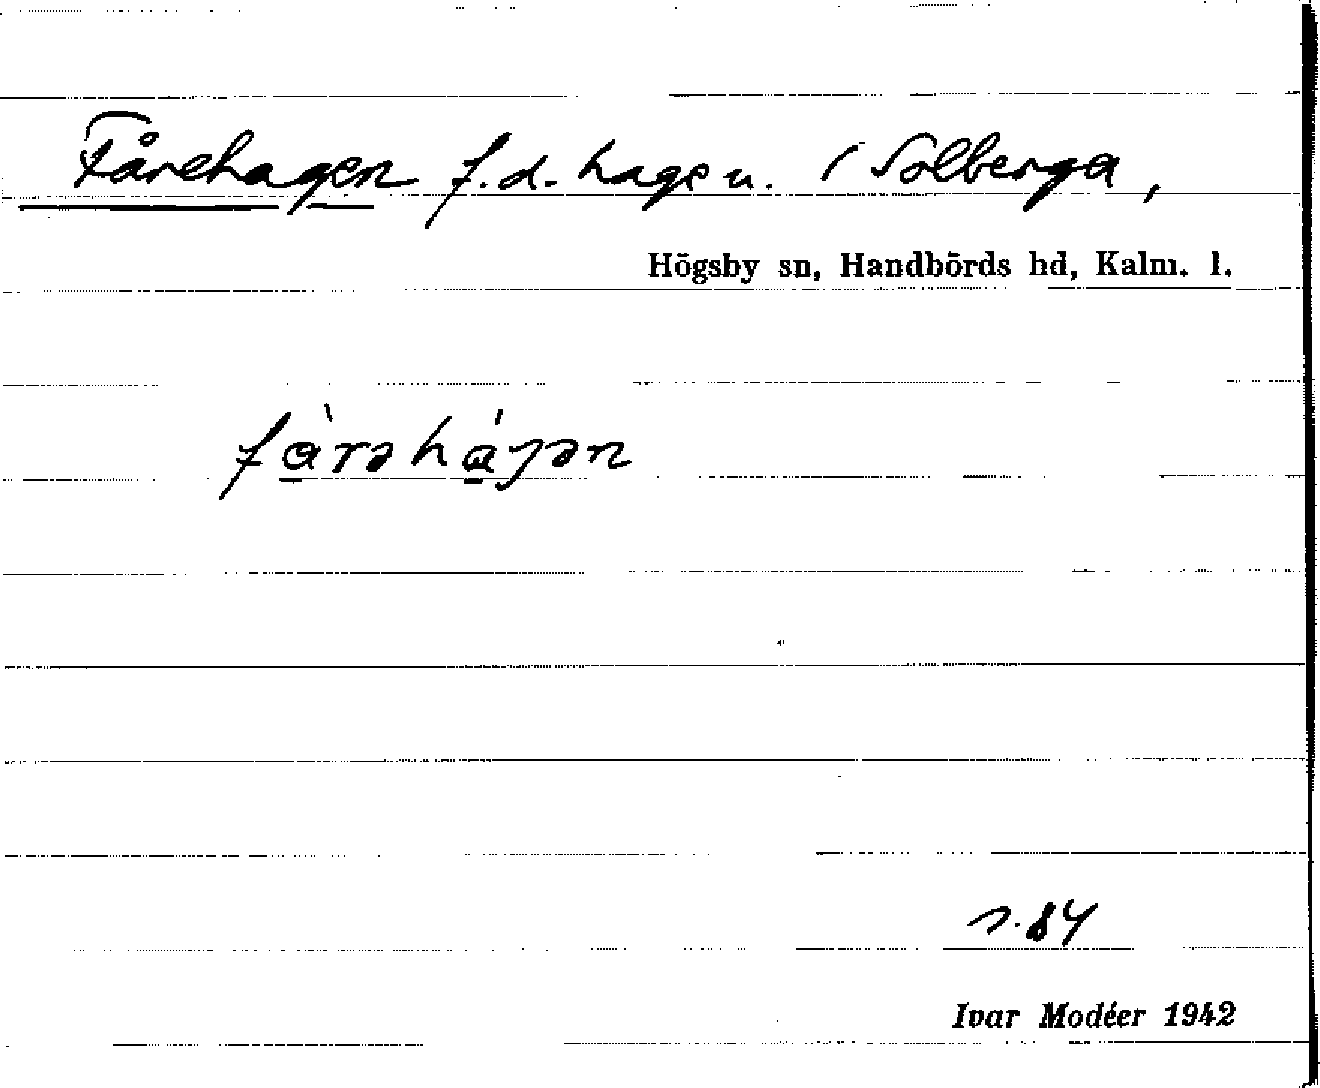 Fårehagen f.d. hage u. / Solberga,
Högsby sn, Handbörds hd, Kalm. l.
fàrəháɡən
s. 84
Ivar Modéer 1942